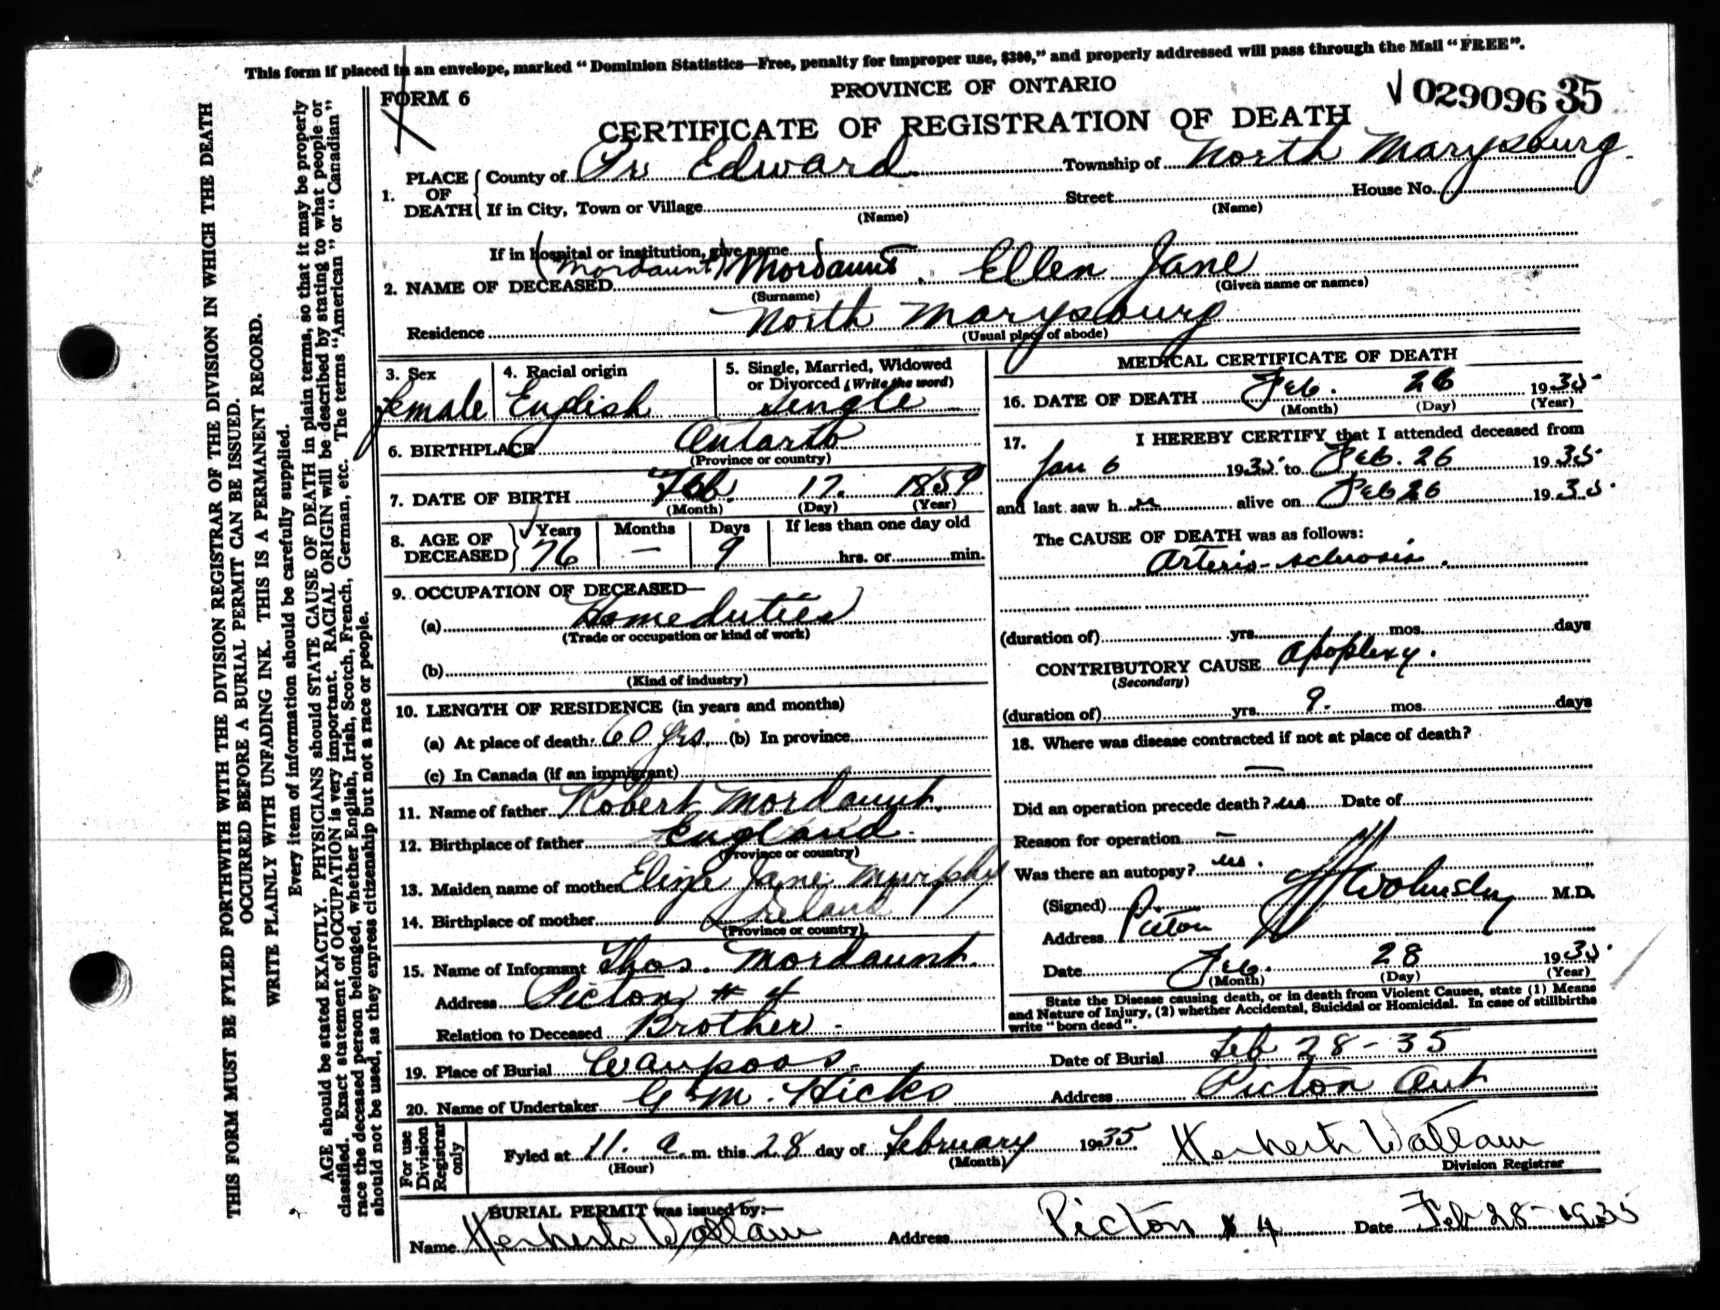 This form if placed in an envelope, marked "Dominion Statistics—Free, penalty for improper use, $300," and properly addressed will pass through the Mail "FREE".
FORM 6
PROVINCE OF ONTARIO
029096 35
CERTIFICATE OF REGISTRATION OF DEATH
1. PLACE OF DEATH { County of Pr Edward Township of North Marysburg
If in City, Town or Village (Name) Street (Name) House No.
If in hospital or institution, give name
2. NAME OF DECEASED (Mordaunt) Mordaunt, Ellen Jane
(Surname) (Given name or names)
Residence North Marysburg
(Usual place of abode)
3. Sex female
4. Racial origin English
5. Single, Married, Widowed or Divorced (Write the word) Single
6. BIRTHPLACE Ontario
(Province or country)
7. DATE OF BIRTH Feb. 17. 1859
(Month) (Day) (Year)
8. AGE OF DECEASED } Years 76 Months — Days 9 If less than one day old hrs. or min.
9. OCCUPATION OF DECEASED—
(a) Home duties
(Trade or occupation or kind of work)
(b)
(Kind of industry)
10. LENGTH OF RESIDENCE (in years and months)
(a) At place of death: 60 yrs. (b) In province
(c) In Canada (if an immigrant)
11. Name of father Robert Mordaunt.
12. Birthplace of father England.
(Province or country)
13. Maiden name of mother Eliza Jane Murphy
14. Birthplace of mother Ireland
(Province or country)
15. Name of Informant Thos. Mordaunt.
Address Picton # 4
Relation to Deceased Brother -
MEDICAL CERTIFICATE OF DEATH
16. DATE OF DEATH Feb. 26 1935
(Month) (Day) (Year)
17. I HEREBY CERTIFY that I attended deceased from
Jan 6 1935 to Feb. 26 1935
and last saw h er alive on Feb 26 1935
The CAUSE OF DEATH was as follows:
Arterio-sclerosis.
(duration of) yrs. mos. days
CONTRIBUTORY CAUSE Apoplexy.
(Secondary)
(duration of) yrs. 9. mos. days
18. Where was disease contracted if not at place of death?
—
Did an operation precede death? no Date of
Reason for operation —
Was there an autopsy? no.
(Signed) M.D.
Address Picton
Date Feb. 28 1935
(Month) (Day) (Year)
State the Disease causing death, or in death from Violent Causes, state (1) Means
and Nature of Injury, (2) whether Accidental, Suicidal or Homicidal. In case of stillbirths
write "born dead".
19. Place of Burial Waupoos. Date of Burial Feb 28-35
20. Name of Undertaker G M. Hicks Address Picton Ont
For use Division Registrar only
Fyled at 11. a. m. this 28 day of February 1935 Herbert Wallam
(Hour) (Month) Division Registrar
BURIAL PERMIT was issued by:—
Name Herbert Wallam Address Picton # 4 Date Feb 28-1935
THIS FORM MUST BE FYLED FORTHWITH WITH THE DIVISION REGISTRAR OF THE DIVISION IN WHICH THE DEATH
OCCURRED BEFORE A BURIAL PERMIT CAN BE ISSUED.
WRITE PLAINLY WITH UNFADING INK. THIS IS A PERMANENT RECORD.
Every item of information should be carefully supplied.
AGE should be stated EXACTLY. PHYSICIANS should STATE CAUSE OF DEATH in plain terms, so that it may be properly
classified. Exact statement of OCCUPATION is very important. RACIAL ORIGIN will be described by stating to what people or
race the deceased person belonged, whether English, Irish, Scotch, French, German, etc. The terms "American" or "Canadian"
should not be used, as they express citizenship but not a race or people.